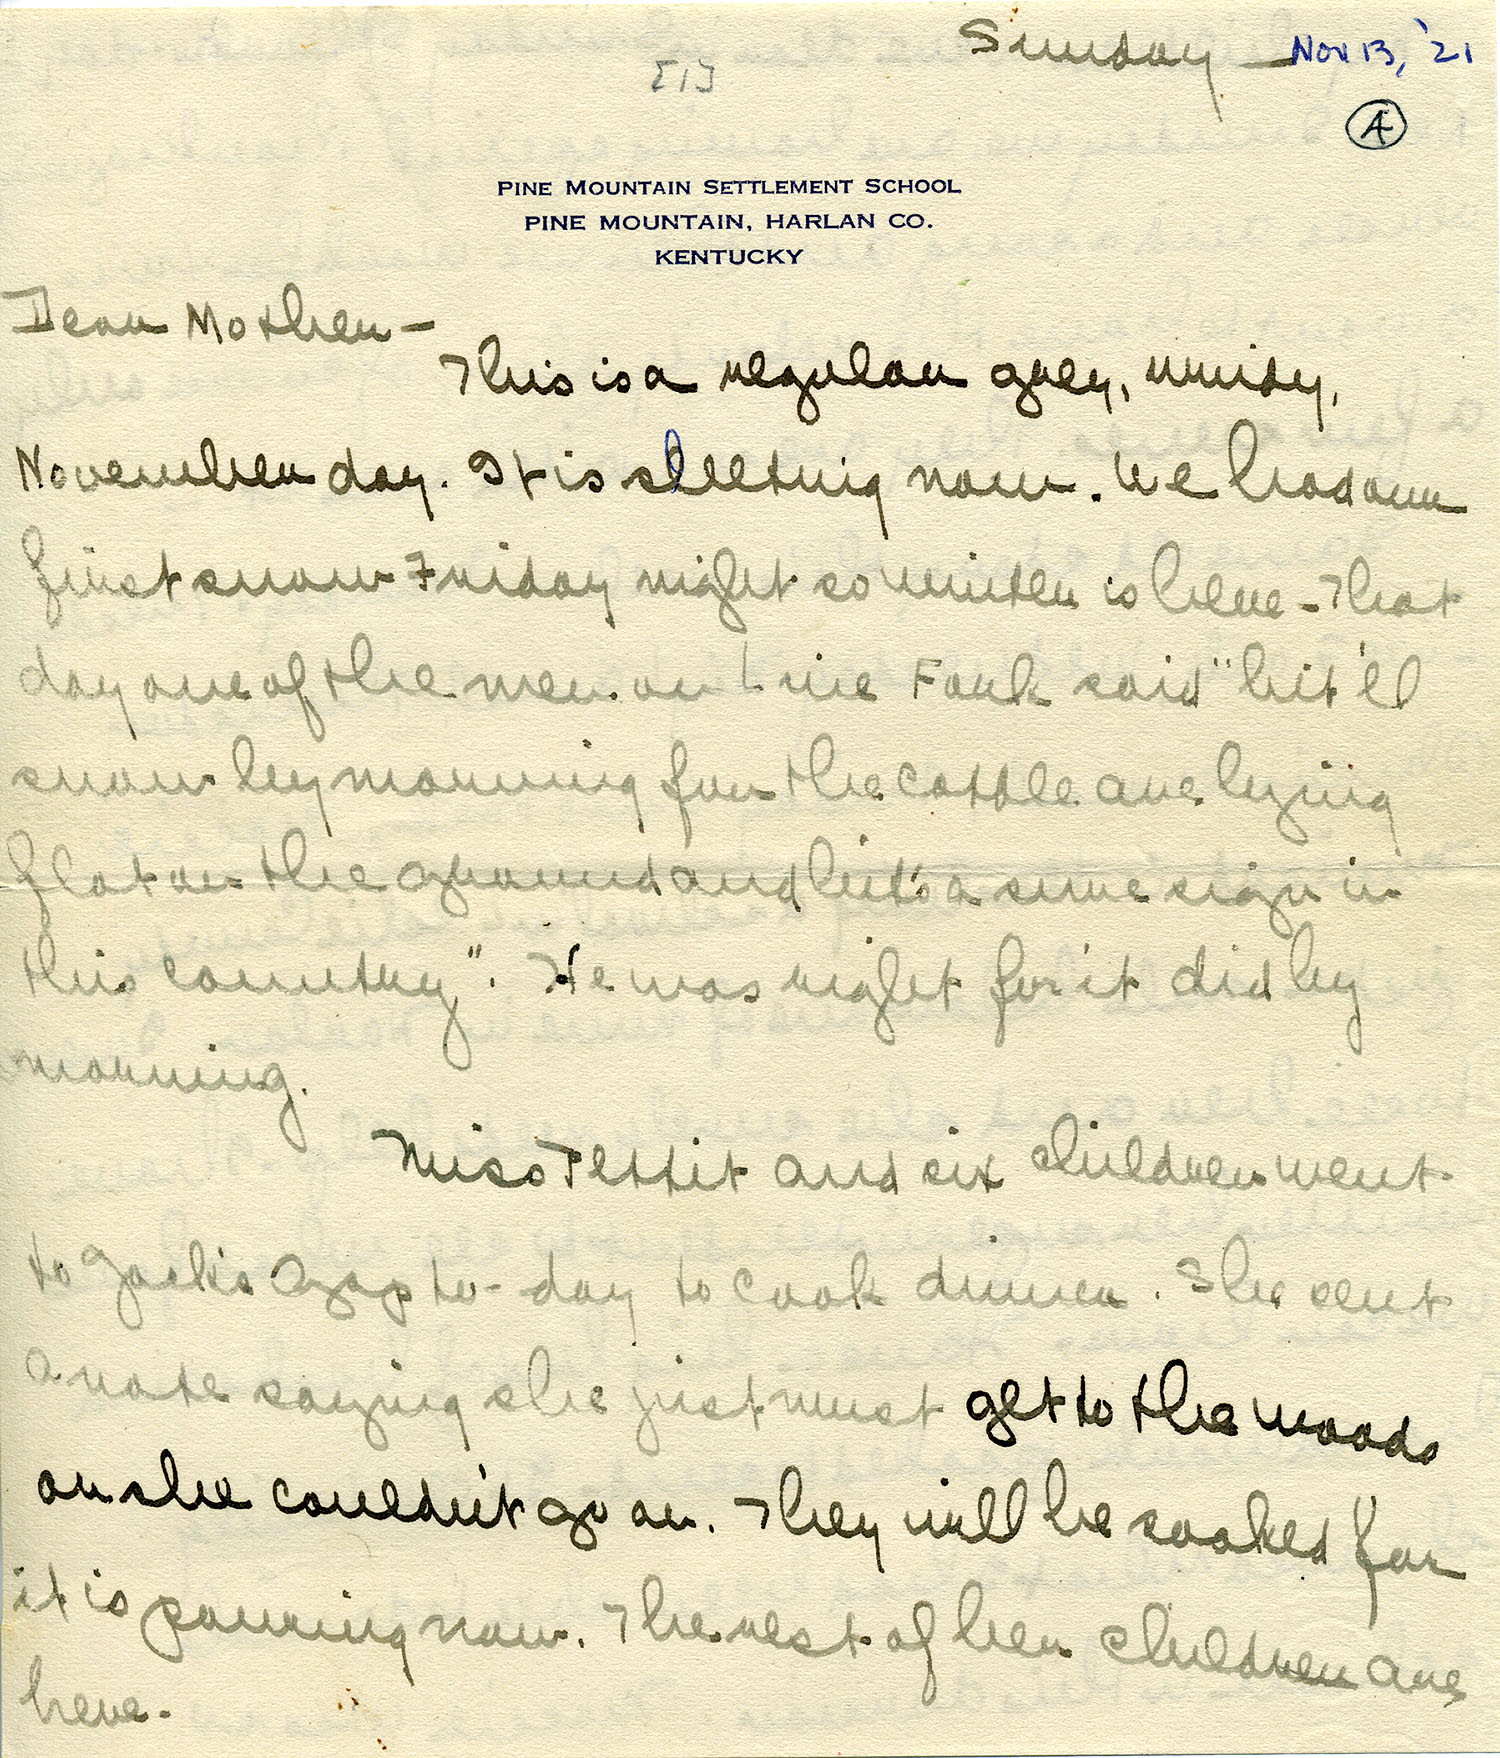 Sunday — Nov 13, '21
[1]
A
PINE MOUNTAIN SETTLEMENT SCHOOL
PINE MOUNTAIN, HARLAN CO.
KENTUCKY
Dear Mother —
This is a regular grey, windy,
November day. It is sleeting now. We had our
first snow Friday night so winter is here – That
day one of the men on Line Fork said "hit'll
snow by morning for the cattle are lying
flat on the ground and hit's a sure sign in
this country". He was right for it did by
morning.
Miss Pettit and six children went
to Jack's Gap to-day to cook dinner. She sent
a note saying she just must get to the woods
or she couldn't go on. They will be soaked for
it is pouring now. The rest of her children are
here.